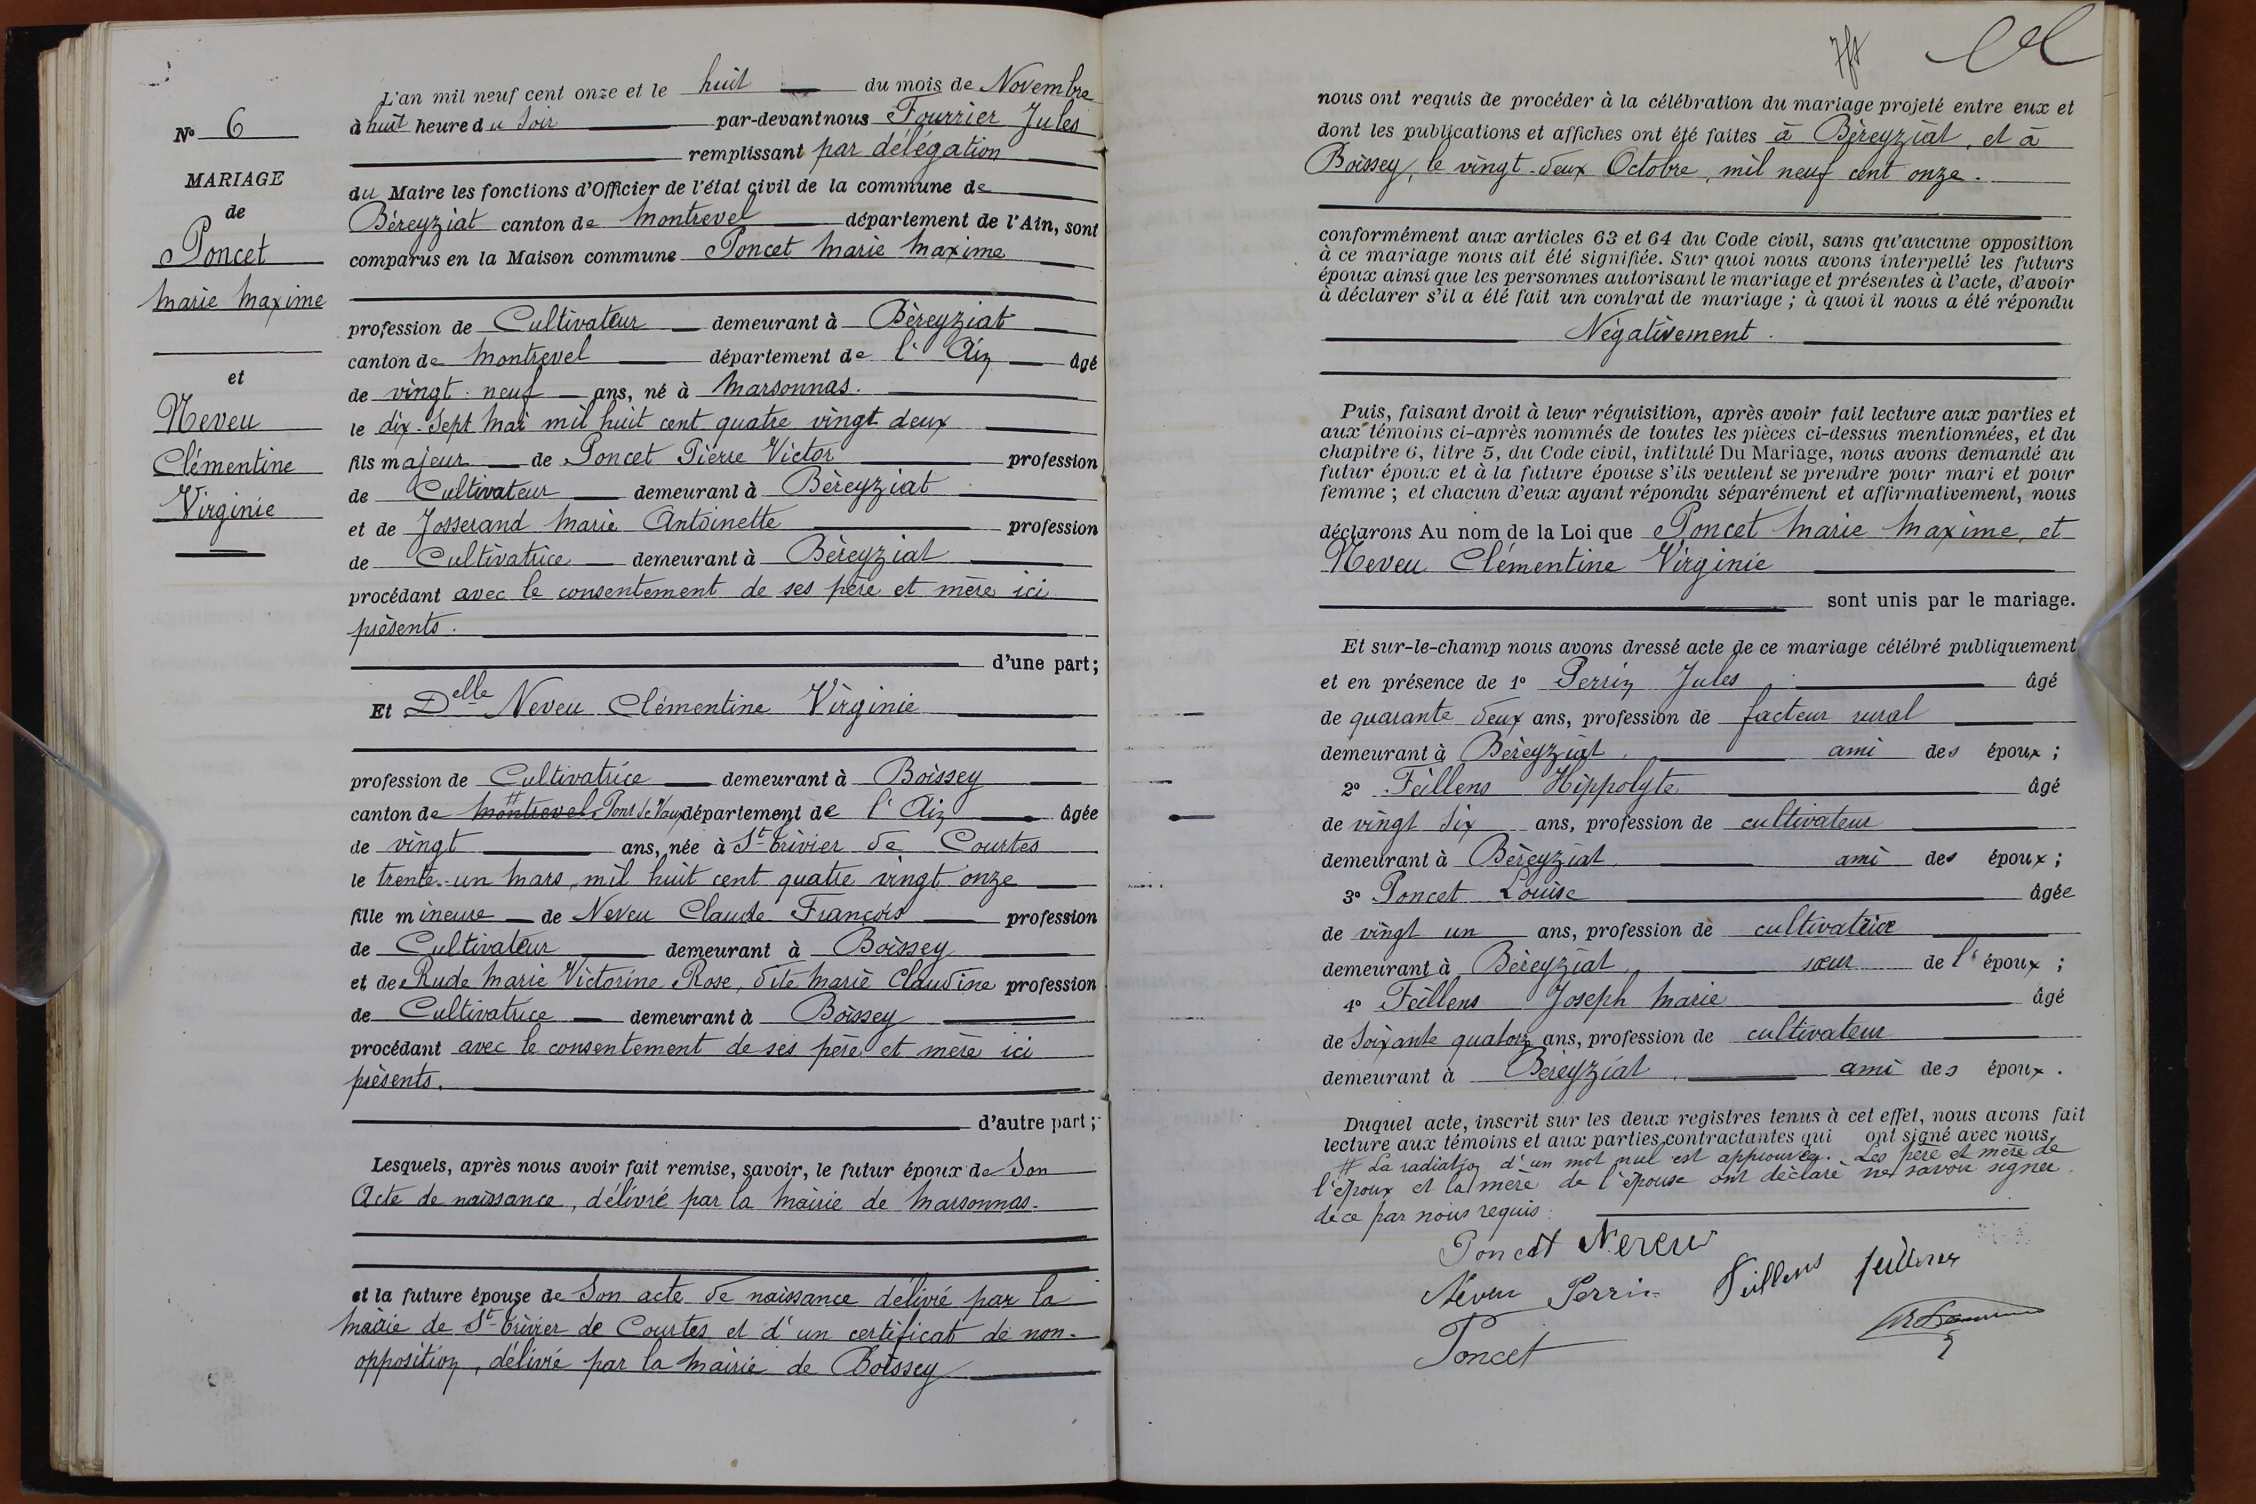 N° 6
MARIAGE
de
Poncet
Marie Maxime
et
Neveu
Clémentine
Virginie
L'an mil neuf cent onze et le huit du mois de Novembre
à huit heure du Soir par-devant nous Fourrier Jules
remplissant par délégation
du Maire les fonctions d'Officier de l'état civil de la commune de
Béreyziat canton de Montrevel département de l'Ain, sont
comparus en la Maison commune Poncet Marie Maxime
profession de Cultivateur demeurant à Béreyziat
canton de Montrevel département de l'Ain âgé
de vingt-neuf ans, né à Marsonnas.
le dix-sept Mai mil huit cent quatre vingt deux
fils majeur de Poncet Pierre Victor profession
de Cultivateur demeurant à Béreyziat
et de Josserand Marie Antoinette profession
de Cultivatrice demeurant à Béreyziat
procédant avec le consentement de ses père et mère ici
présents.
d'une part;
Et Delle Neveu Clémentine Virginie
profession de Cultivatrice demeurant à Boissey
canton de # Montrevel Pont de Vaux département de l'Ain âgée
de vingt ans, née à St-Trivier de Courtes
le trente-un Mars, mil huit cent quatre vingt onze
fille mineure de Neveu Claude François profession
de Cultivateur demeurant à Boissey
et de Rude Marie Victorine Rose, dite Marie Claudine profession
de Cultivatrice demeurant à Boissey
procédant avec le consentement de ses père et mère ici
présents.
d'autre part;
Lesquels, après nous avoir fait remise, savoir, le futur époux de Son
Acte de naissance, délivré par la Mairie de Marsonnas.
et la future épouse de Son acte de naissance délivré par la
Mairie de St-Trivier de Courtes et d'un certificat de non-
opposition, délivré par la Mairie de Boissey
nous ont requis de procéder à la célébration du mariage projeté entre eux et
dont les publications et affiches ont été faites à Béreyziat, et à
Boissey, le vingt-deux Octobre, mil neuf cent onze.
conformément aux articles 63 et 64 du Code civil, sans qu'aucune opposition
à ce mariage nous ait été signifiée. Sur quoi nous avons interpellé les futurs
époux ainsi que les personnes autorisant le mariage et présentes à l'acte, d'avoir
à déclarer s'il a été fait un contrat de mariage ; à quoi il nous a été répondu
Négativement.
Puis, faisant droit à leur réquisition, après avoir fait lecture aux parties et
aux témoins ci-après nommés de toutes les pièces ci-dessus mentionnées, et du
chapitre 6, titre 5, du Code civil, intitulé Du Mariage, nous avons demandé au
futur époux et à la future épouse s'ils veulent se prendre pour mari et pour
femme ; et chacun d'eux ayant répondu séparément et affirmativement, nous
déclarons Au nom de la Loi que Poncet Marie Maxime, et
Neveu Clémentine Virginie
sont unis par le mariage.
Et sur-le-champ nous avons dressé acte de ce mariage célébré publiquement
et en présence de 1° Perrin Jules âgé
de quarante deux ans, profession de facteur rural
demeurant à Béreyziat. ami des époux ;
2° Feillens Hippolyte âgé
de vingt six ans, profession de cultivateur
demeurant à Béreyziat. ami des époux ;
3° Poncet Louise âgée
de vingt un ans, profession de cultivatrice
demeurant à Béreyziat. sœur de l'époux ;
4° Feillens Joseph Marie âgé
de soixante quatorze ans, profession de cultivateur
demeurant à Béreyziat. ami des époux.
Duquel acte, inscrit sur les deux registres tenus à cet effet, nous avons fait
lecture aux témoins et aux parties contractantes qui ont signé avec nous.
# La radiation d'un mot nul est approuvée. Les père et mère de
l'époux et la mère de l'épouse ont déclaré ne savoir signer
de ce par nous requis.
Poncet Neveu
Neveu Perrin Feillens feillens
Poncet